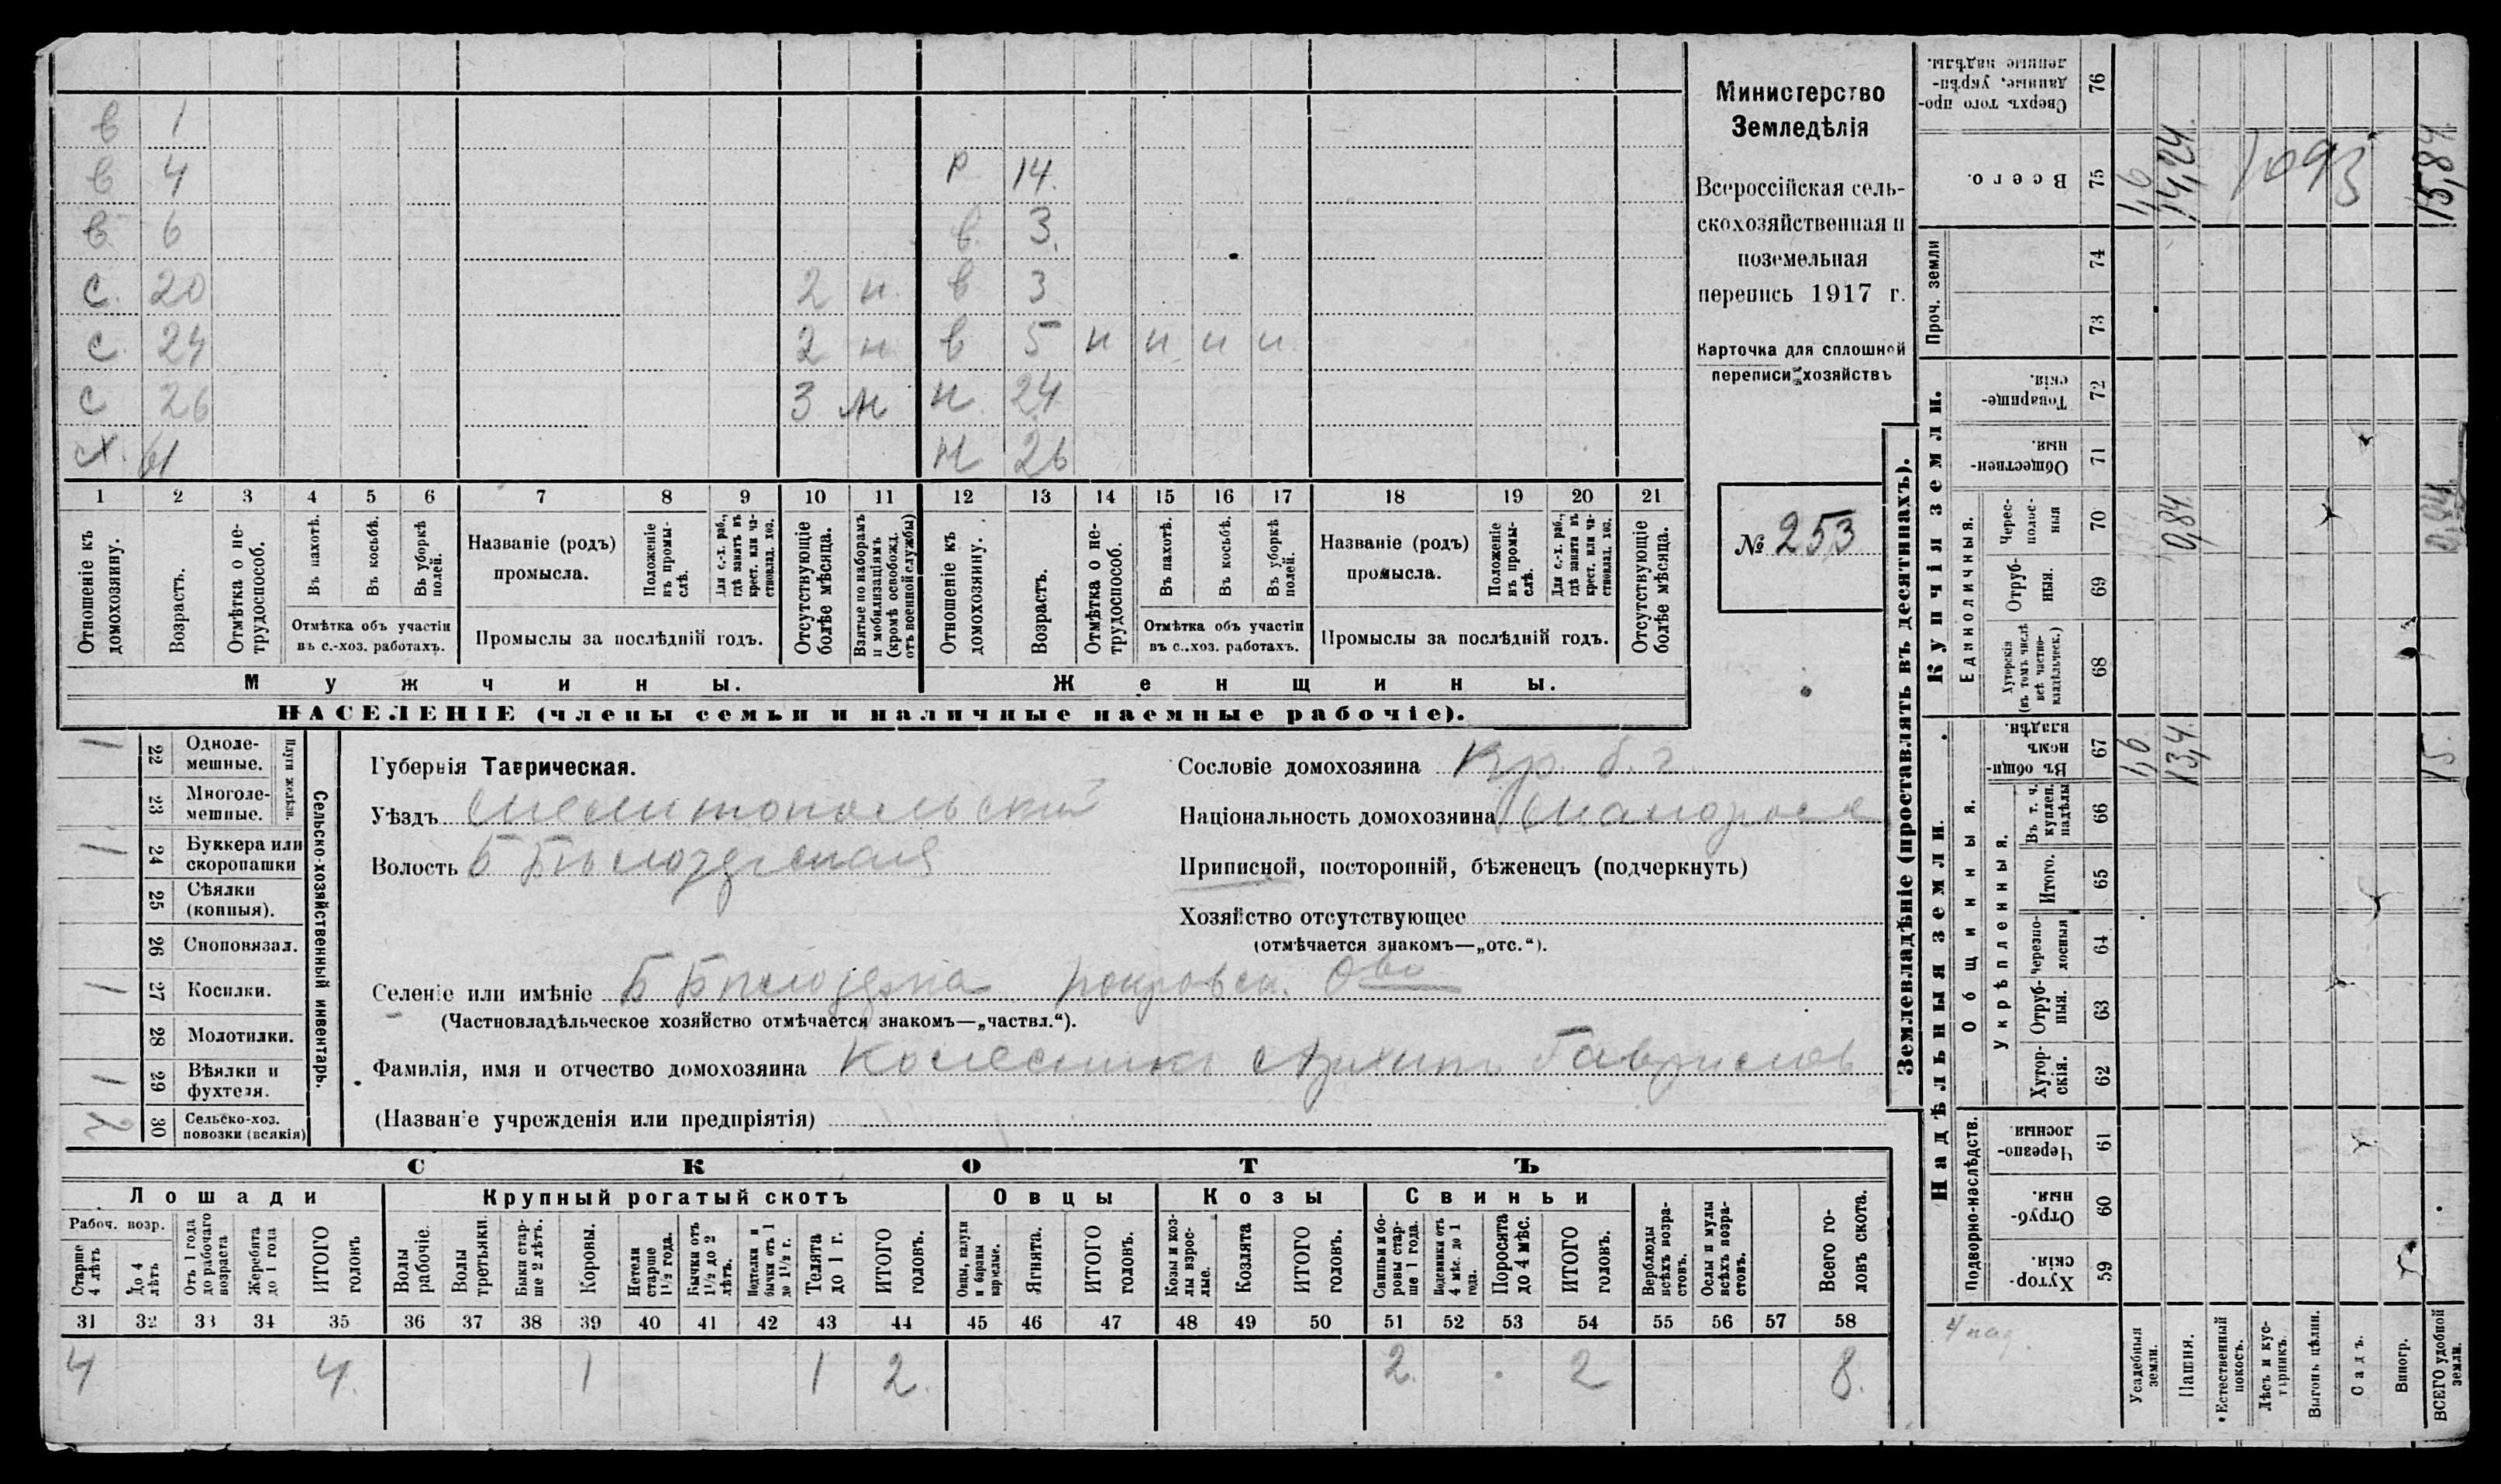 Министерство
Земледѣлія
Всероссійская сель-
скохозяйственная и
поземельная
перепись 1917 г.
Карточка для сплошной
переписи хозяйствъ
№ 253
в 1
в 4 Р 14.
в. 6 в. 3.
с. 20 2 н. в 3
с. 24 2 н в 5 н н н н
с 26 3 н. 24
х. 61 н 26
1 2 3 4 5 6 7 8 9 10 11 12 13 14 15 16 17 18 19 20 21
Отношеніе къ домохозяину.
Возрастъ.
Отмѣтка о не-трудоспособ.
Въ пахотѣ.
Въ косьбѣ.
Въ уборкѣ полей.
Отмѣтка объ участіи
въ с.-хоз. работахъ.
Названіе (родъ)
промысла.
Положеніе въ промы-слѣ.
Для с.-х. раб., гдѣ занятъ въ крест. или ча-ствовлад. хоз.
Промыслы за послѣдній годъ.
Отсутствующіе болѣе мѣсяца.
Взятые по наборамъ и мобилизаціямъ (кромѣ освобожд. отъ военной службы)
Отношеніе къ домохозяину.
Возрастъ.
Отмѣтка о не-трудоспособ.
Въ пахотѣ.
Въ косьбѣ.
Въ уборкѣ полей.
Отмѣтка объ участіи
въ с.-хоз. работахъ.
Названіе (родъ)
промысла.
Положеніе въ промы-слѣ.
Для с.-х. раб., гдѣ занята въ крест. или ча-ствовлад. хоз.
Промыслы за послѣдній годъ.
Отсутствующіе болѣе мѣсяца.
Мужчины. Женщины.
НАСЕЛЕНІЕ (члены семьи и наличные наемные рабочіе).
Сельско-хозяйственный инвентарь.
Плуги желѣзн.
1 22 Одноле-мешные.
23 Многоле-мешные.
1 24 Буккера или скоропашки
25 Сѣялки (конныя).
26 Сноповязал.
1 27 Косилки.
28 Молотилки.
1 29 Вѣялки и фухтеля.
30 Сельско-хоз. повозки (всякія)
Губернія Таврическая.
Уѣздъ Мелитопольскій
Волость Б Бѣлозерская
Селеніе или имѣніе Б Бѣлозерка покровск. О-во
(Частновладѣльческое хозяйство отмѣчается знакомъ—„частвл.“).
Фамилія, имя и отчество домохозяина Колесникъ Архипъ Гавриловъ
(Названіе учрежденія или предпріятія)
Сословіе домохозяина Кр. б. г.
Національность домохозяина Малоросъ
Приписной, посторонній, бѣженецъ (подчеркнуть)
Хозяйство отсутствующее
(отмѣчается знакомъ—„отс.“).
СКОТЪ
Лошади Крупный рогатый скотъ Овцы Козы Свиньи
Рабоч. возр.
Старше 4 лѣтъ
До 4 лѣтъ
Отъ 1 года до рабочаго возраста
Жеребята до 1 года
ИТОГО головъ
Волы рабочіе.
Волы третьяки.
Быки стар-ше 2 лѣтъ.
Коровы.
Нетели старше 1½ года.
Бычки отъ 1½ до 2 лѣтъ.
Подтелки и бычки отъ 1 до 1½ г.
Телята до 1 г.
ИТОГО головъ.
Овцы, валухи и бараны взрослые.
Ягнята.
ИТОГО головъ.
Козы и коз-лы взрос-лые.
Козлята
ИТОГО головъ.
Свиньи и бо-ровы стар-ше 1 года.
Подсвинки отъ 4 мѣс. до 1 года.
Поросята до 4 мѣс.
ИТОГО головъ.
Верблюды всѣхъ возра-стовъ.
Ослы и мулы всѣхъ возра-стовъ.
Всего го-ловъ скота.
31 32 33 34 35 36 37 38 39 40 41 42 43 44 45 46 47 48 49 50 51 52 53 54 55 56 57 58
4 4. 1 1 2. 2. 2 8.
Землевладѣніе (проставлять въ десятинахъ).
Надѣльныя земли. Купчія земли.
Подворно-наслѣдств.
Общинныя.
Укрѣпленныя.
Единоличныя.
Проч. земли
59 Хутор-скія.
60 Отруб-ныя.
61 Черезпо-лосныя.
62 Хутор-скія.
63 Отруб-ныя.
64 Черезпо-лосныя
65 Итого.
66 Въ т. ч. куплен. надѣлы
67 Въ общи-номъ владѣн.
68 Хуторскія (въ томъ числѣ всѣ частно-владѣльческ.)
69 Отруб-ныя.
70 Черес-полос-ныя
71 Обществен-ныя.
72 Товарище-скія.
73
74
75 Всего.
76 Сверхъ того про-данные, укрѣп-ленные надѣлы.
Усадебныя земли. 1,6 1,6
Пашня. 13,4 0,84 14,24
Естественный покосъ.
Лѣсъ и кус-тарникъ.
Выгонъ цѣлин.
Садъ.
Виногр.
ВСЕГО удобной земли. 15. 0,84 15,84
1093